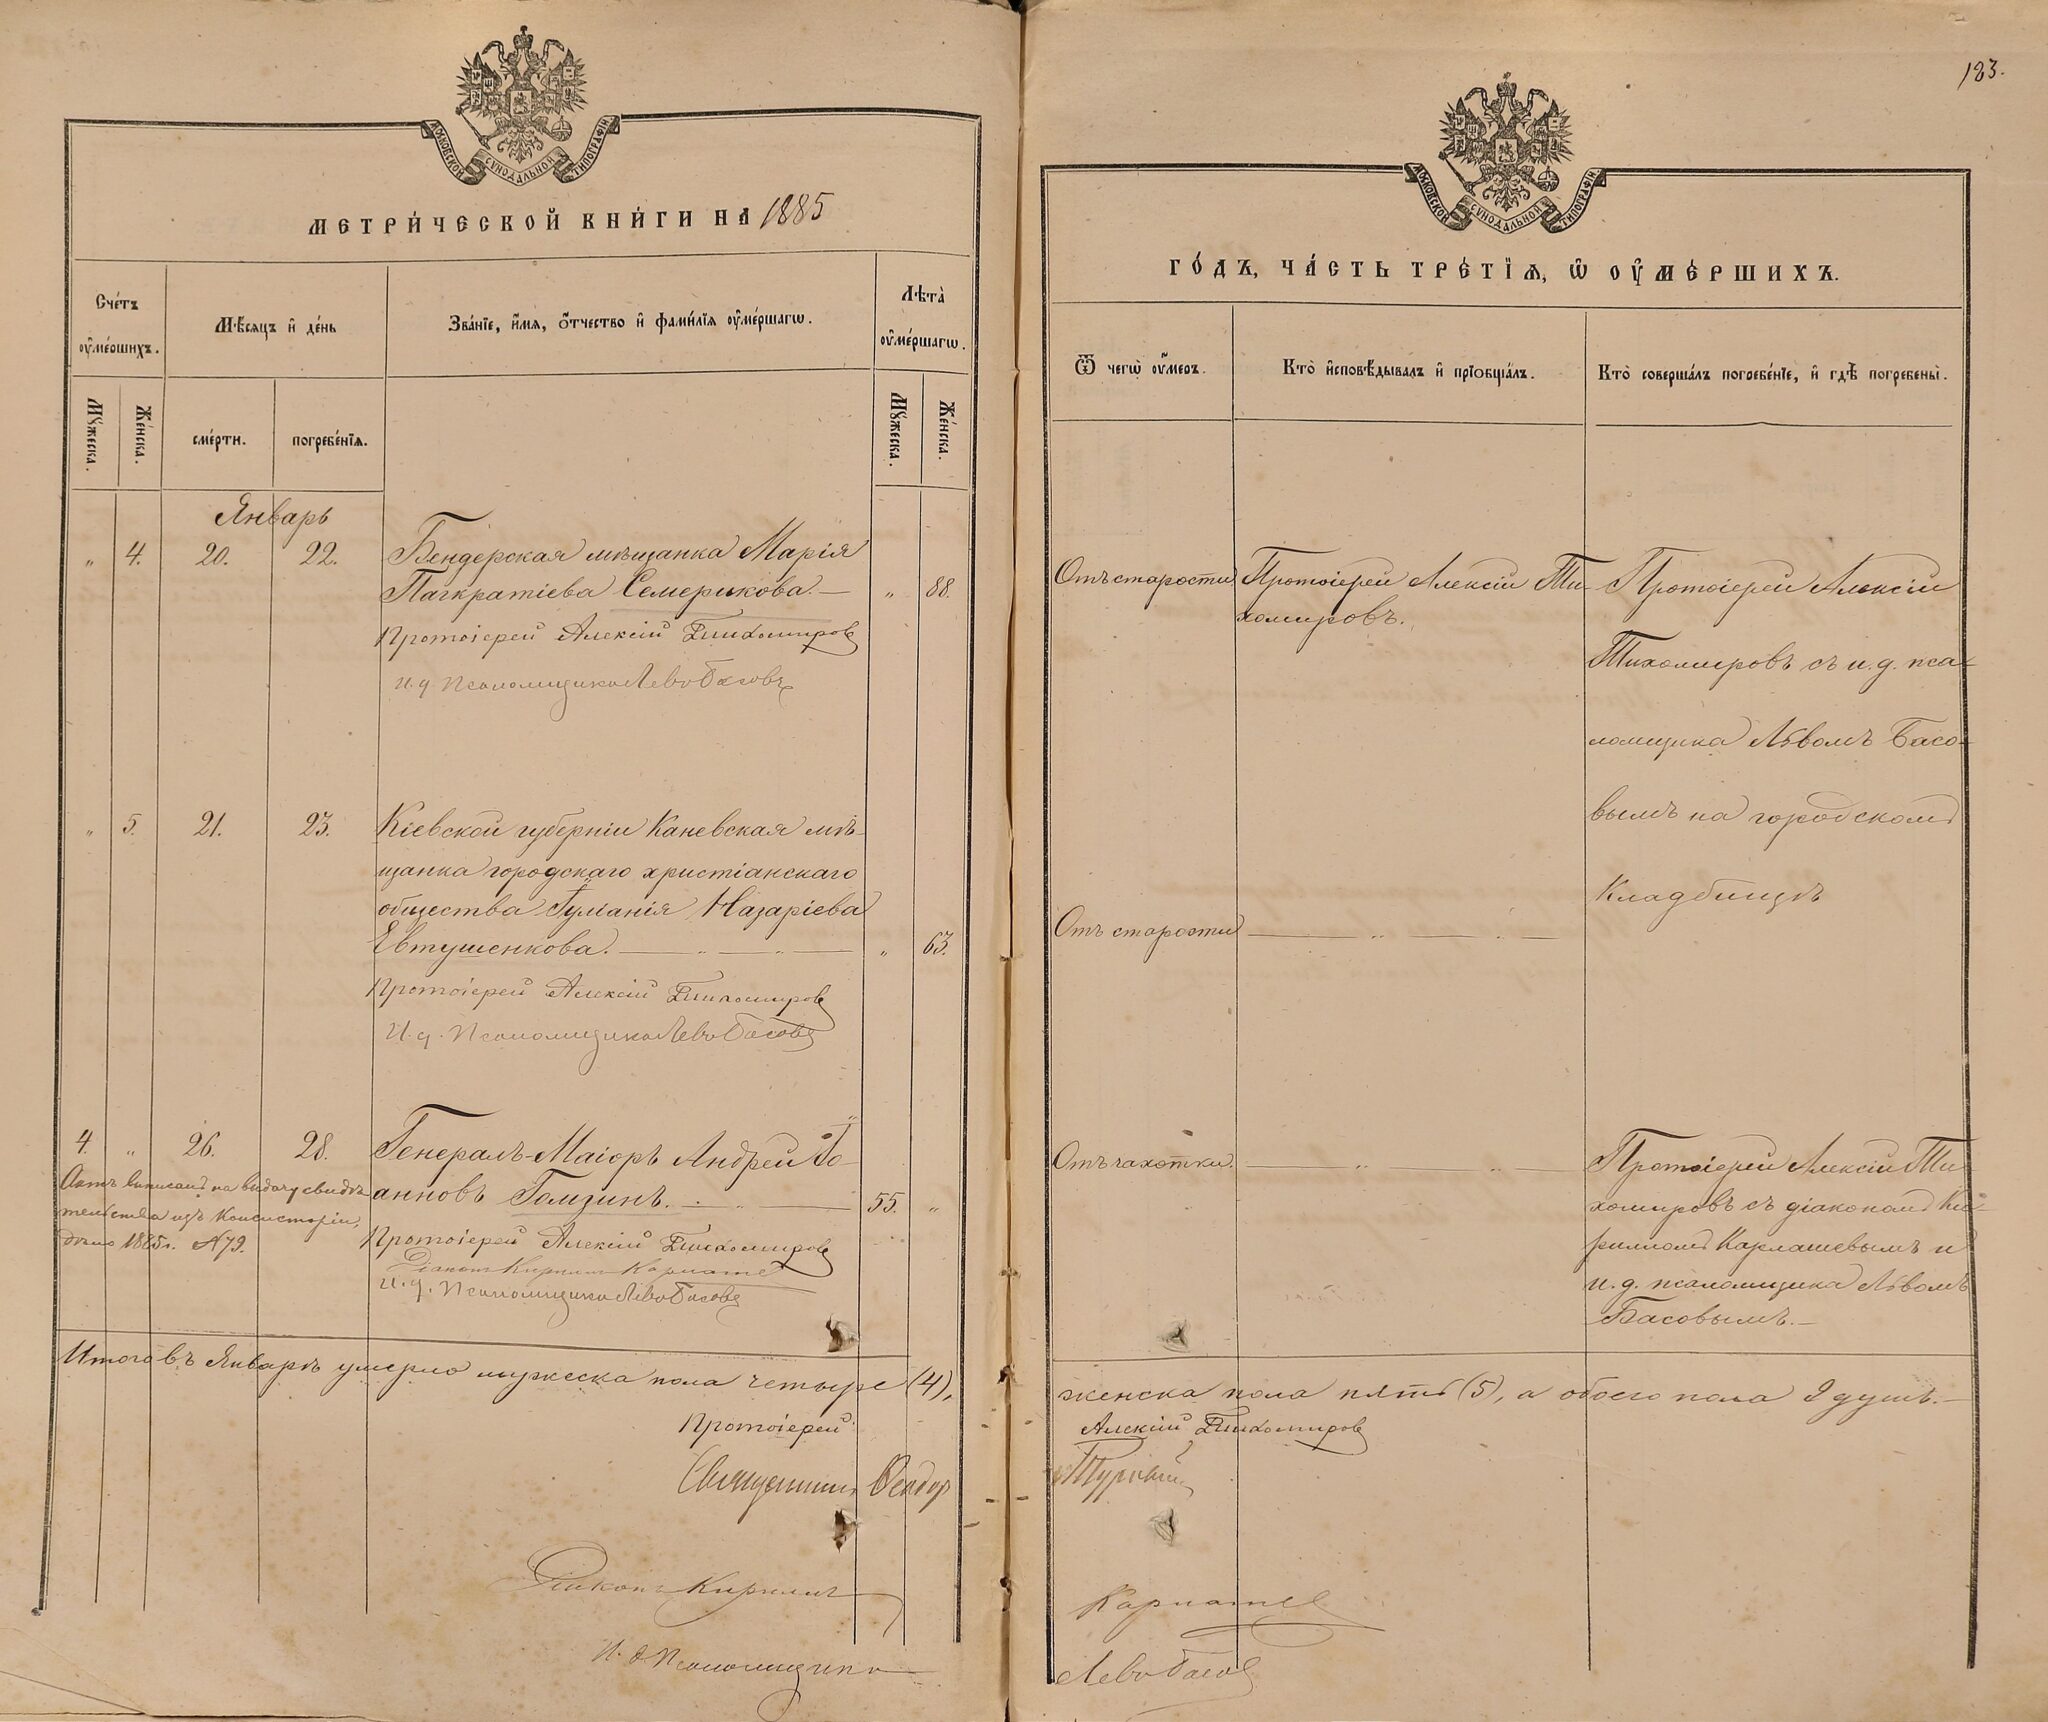 183.
МОСКОВСКОЙ СѴНОДАЛЬНОЙ ТИПОГРАФІИ
МЕТРИ́ЧЕСКОЙ КНИ́ГИ НА 1885
МОСКОВСКОЙ СѴНОДАЛЬНОЙ ТИПОГРАФІИ
ГО́ДЪ, ЧА́СТЬ ТРЕ́ТІѦ, Ѽ ОУ҆МЕ́РШИХЪ.
Сче́тъ оу҆ме́ршихъ.
Мꙋжеска.
Же́нска.
Мѣ́сѧцъ и҆ де́нь
сме́рти.
погребе́нїѧ.
Зва́нїе, и҆́мѧ, ѻ҆́тчество и҆ фами́лїѧ оу҆ме́ршагѡ.
Лѣта̀ оу҆ме́ршагѡ.
Мꙋжеска.
Же́нска.
Ѿ чегѡ̀ оу҆́меръ.
Кто̀ и҆сповѣ́дывалъ и҆ прїѻбща́лъ.
Кто̀ соверша́лъ погребе́нїе, и҆ гдѣ̀ погребены̀.
Январь
" 4. 20. 22. Бендерская мѣщанка Марія
Панкратіева Семерикова. — " 88.
Протоіерей Алексій Тихомировъ
и. д. Псаломщика Левъ Басовъ
Отъ старости
Протоіерей Алексій Ти-
хомировъ.
Протоіерей Алексій
Тихомировъ съ и. д. пса-
ломщика Львомъ Басо-
вымъ на городскомъ
Кладбищѣ
" 5. 21. 23. Кіевской губерніи Каневская мѣ-
щанка городскаго христіанскаго
общества Назаріева
Евтушенкова. — " — " — " 63.
Протоіерей Алексій Тихомировъ
И. д. Псаломщика Левъ Басовъ
Отъ старости — " — " —
4. " 26. 28. Генералъ-Маіоръ Андрей Іо-
анновъ Гамзинъ. — " — 55. "
Актъ выписанъ на выдачу свидѣ-
тельства изъ Консисторіи,
дѣло 1885 г. №79.
Протоіерей Алексій Тихомировъ
Діаконъ Кириллъ Карлашевъ
и. д. Псаломщика Левъ Басовъ
Отъ чахотки. — " — " —
Протоіерей Алексій Ти-
хомировъ съ діакономъ Ки-
рилломъ Карлашевымъ и
и. д. псаломщика Львомъ
Басовымъ. —
Итого въ Январѣ умерло мужеска пола четыре (4), женска пола пять (5), а обоего пола 9 душъ. —
Протоіерей Алексій Тихомировъ
Священникъ Ѳеодоръ
Діаконъ Кириллъ Карлашевъ
И. д. Псаломщика Левъ Басовъ